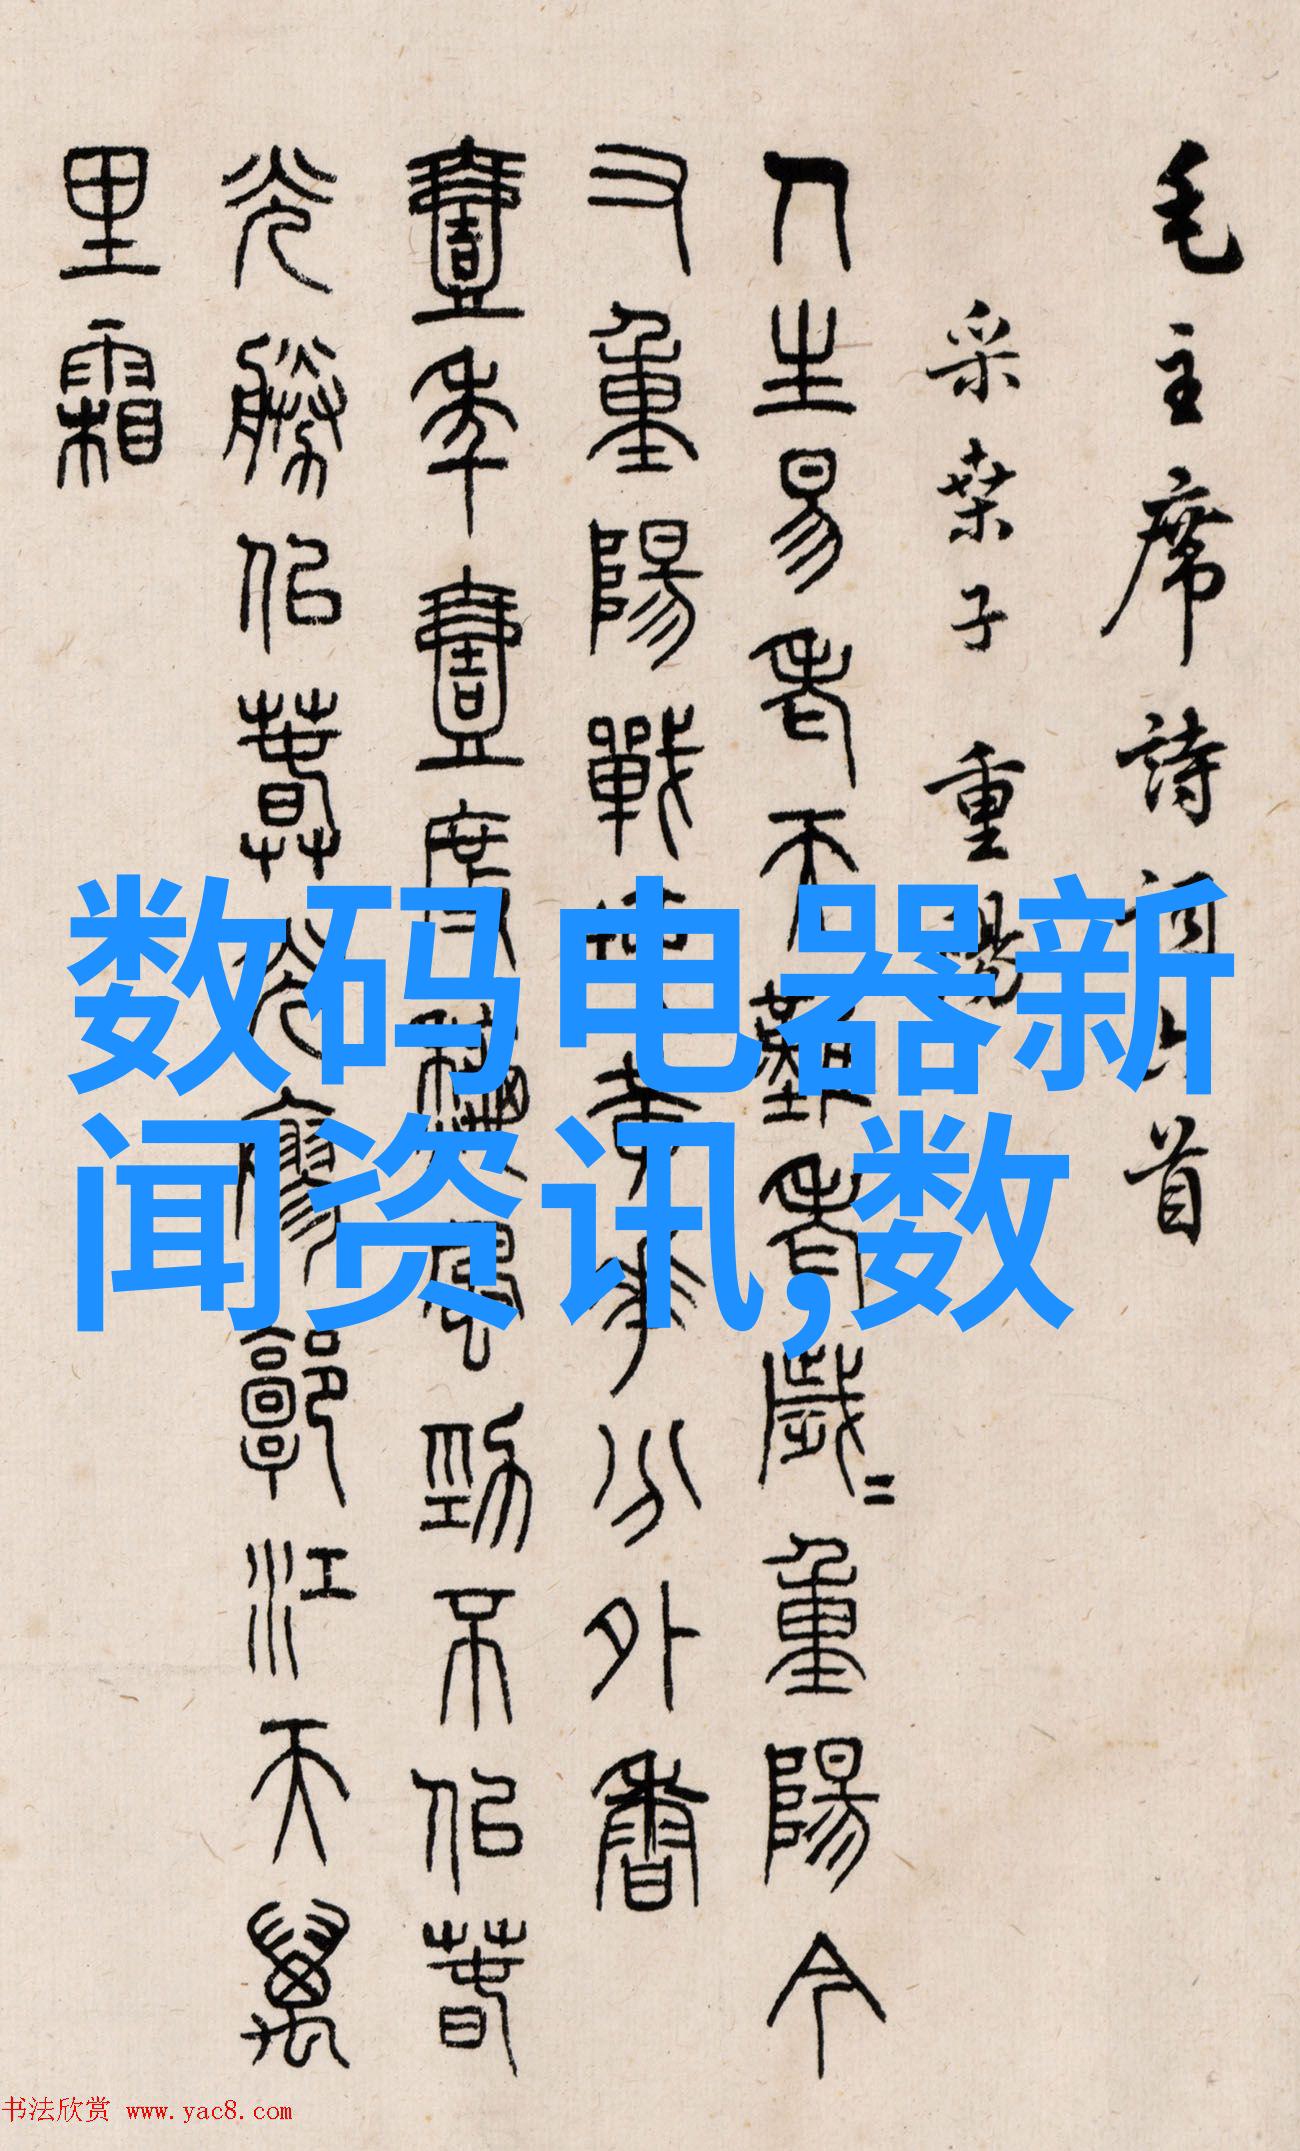 毛主席詩詞首
采桒子 重陽
人生易老天難老歲〻重陽今
又重陽戰地黃華分外香
壹年壹度秋風勁不佀春
光勝佀春光廖郭江天萬
里霜
数码电器新
闻资讯,数
书法欣赏 www.yac8.com